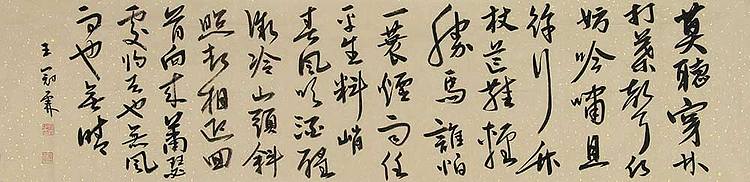 莫聽穿林
打葉聲何
妨吟嘯且
徐行竹
杖芒鞋輕
勝馬誰怕
一蓑煙雨任
平生料峭
春風吹酒醒
微冷山頭斜
照却相迎回
首向來蕭瑟
處歸去也無風
雨也無晴
王霖